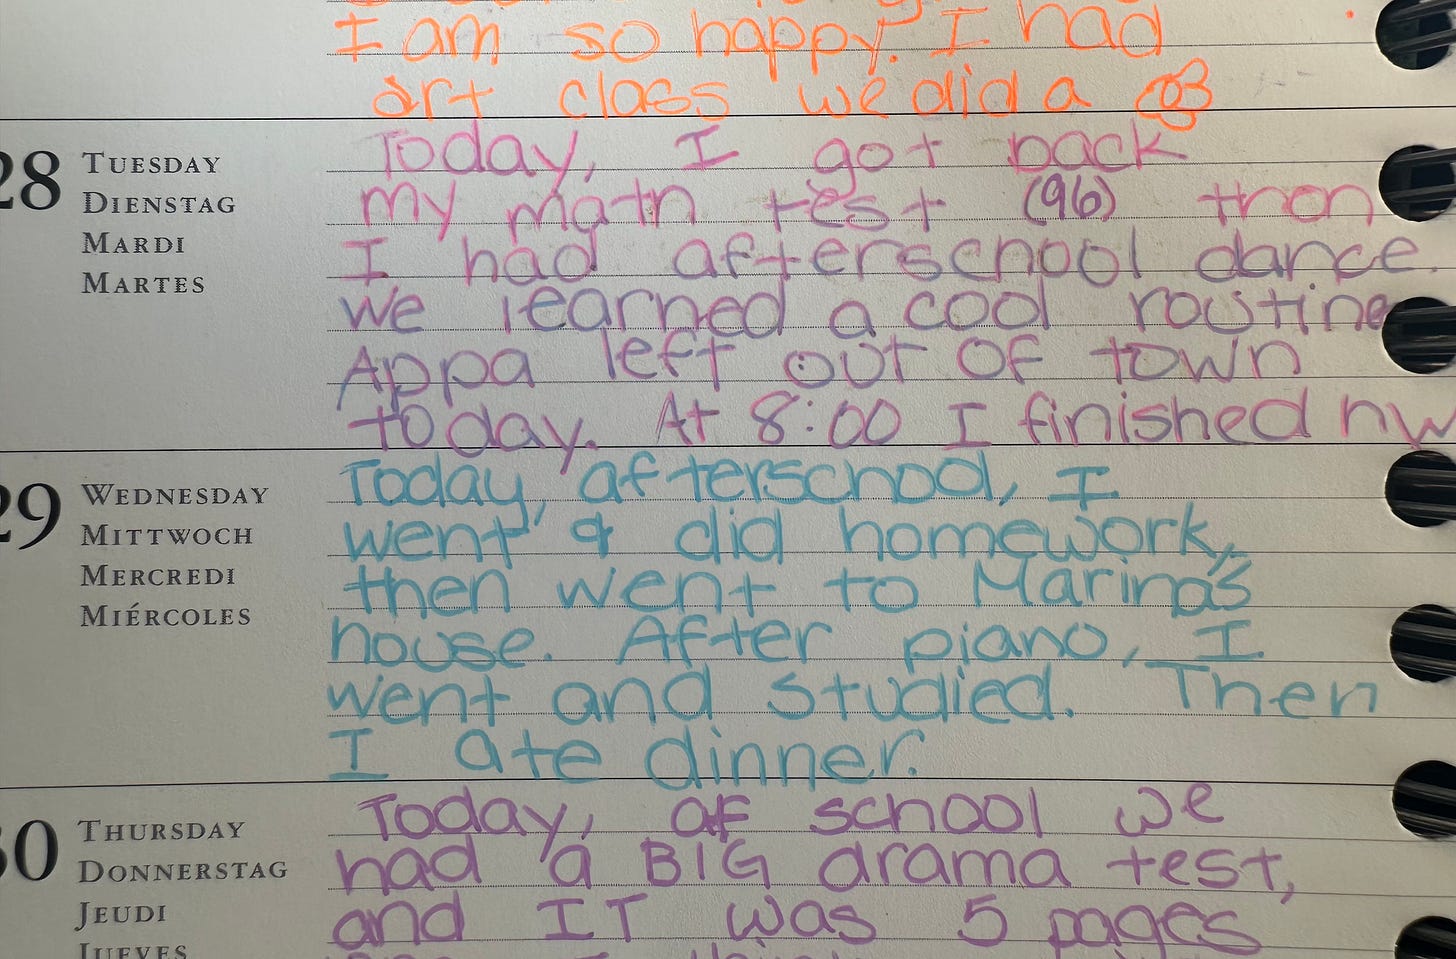 I am so happy. I had
art class we did a
28
TUESDAY
DIENSTAG
MARDI
MARTES
Today, I got back
my math test (96) then
I had afterschool dance.
We learned a cool routine
Appa left out of town
today. At 8:00 I finished hw
29
WEDNESDAY
MITTWOCH
MERCREDI
MIÉRCOLES
Today, afterschool, I
went & did homework,
then went to Marina's
house. After piano, I
went and studied. Then
I ate dinner.
30
THURSDAY
DONNERSTAG
JEUDI
JUEVES
Today, af school we
had a BIG drama test,
and IT was 5 pages